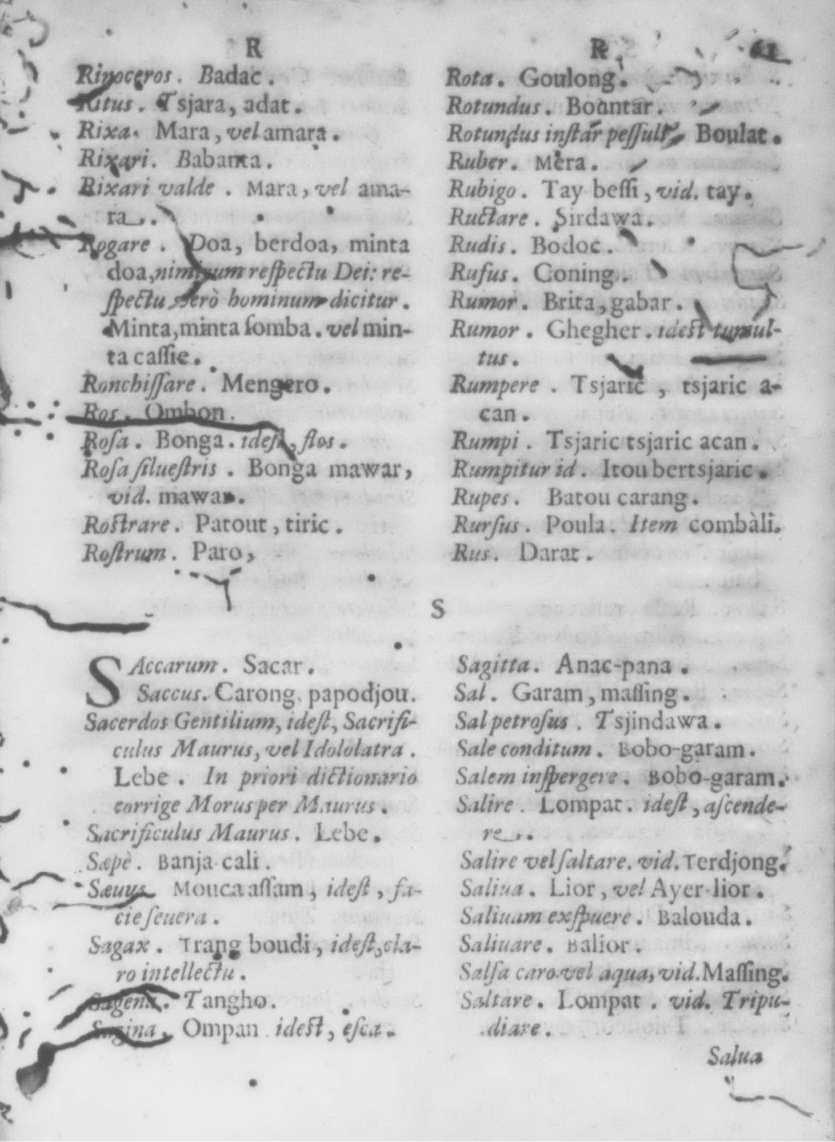 R
Rinoceros. Badac.
Ritus. Tsjara, adat.
Rixa. Mara, vel amara.
Rixari. Babanta.
Rixari valde. Mara, vel ama-
ra.
Rogare. Doa, berdoa, minta
doa, nimirum respectu Dei: re-
spectu verò hominum dicitur.
Minta, minta somba. vel min-
ta cassie.
Ronchissare. Mengero.
Ros. Ombon.
Rosa. Bonga. idest, flos.
Rosa siluestris. Bonga mawar,
vid. mawar.
Rostrare. Patout, tiric.
Rostrum. Paro,
R 61
Rota. Goulong.
Rotundus. Bountar.
Rotundus instar pessuli, Boulat.
Ruber. Mera.
Rubigo. Tay bessi, vid. tay.
Ructare. Sirdawa.
Rudis. Bodoc.
Rufus. Coning.
Rumor. Brita, gabar.
Rumor. Ghegher. idest tumul-
tus.
Rumpere. Tsjaric, tsjaric a-
can.
Rumpi. Tsjaric tsjaric acan.
Rumpitur id. Itou bertsjaric.
Rupes. Batou carang.
Rursus. Poula. Item combàli.
Rus. Darat.
S
SAccarum. Sacar.
Saccus. Carong, papodjou.
Sacerdos Gentilium, idest, Sacrifi-
culus Maurus, vel Idololatra.
Lebe. In priori dictionario
corrige Morus per Maurus.
Sacrificulus Maurus. Lebe.
Sæpè. Banja cali.
Sæuus. Mouca assam, idest, fa-
cie seuera.
Sagax. Trang boudi, idest, cla-
ro intellectu.
Sagena. Tangho.
Sagina, Ompan idest, esca.
Sagitta. Anac-pana.
Sal. Garam, massing.
Sal petrosus. Tsjindawa.
Sale conditum. Bobo-garam.
Salem inspergere. Bobo-garam.
Salire. Lompat. idest, ascende-
re.
Salire vel saltare. vid. Terdjong.
Saliua. Lior, vel Ayer-lior.
Saliuam exspuere. Balouda.
Saliuare. Balior.
Salsa caro vel aqua, vid. Massing.
Saltare. Lompat. vid. Tripu-
diare.
Salua